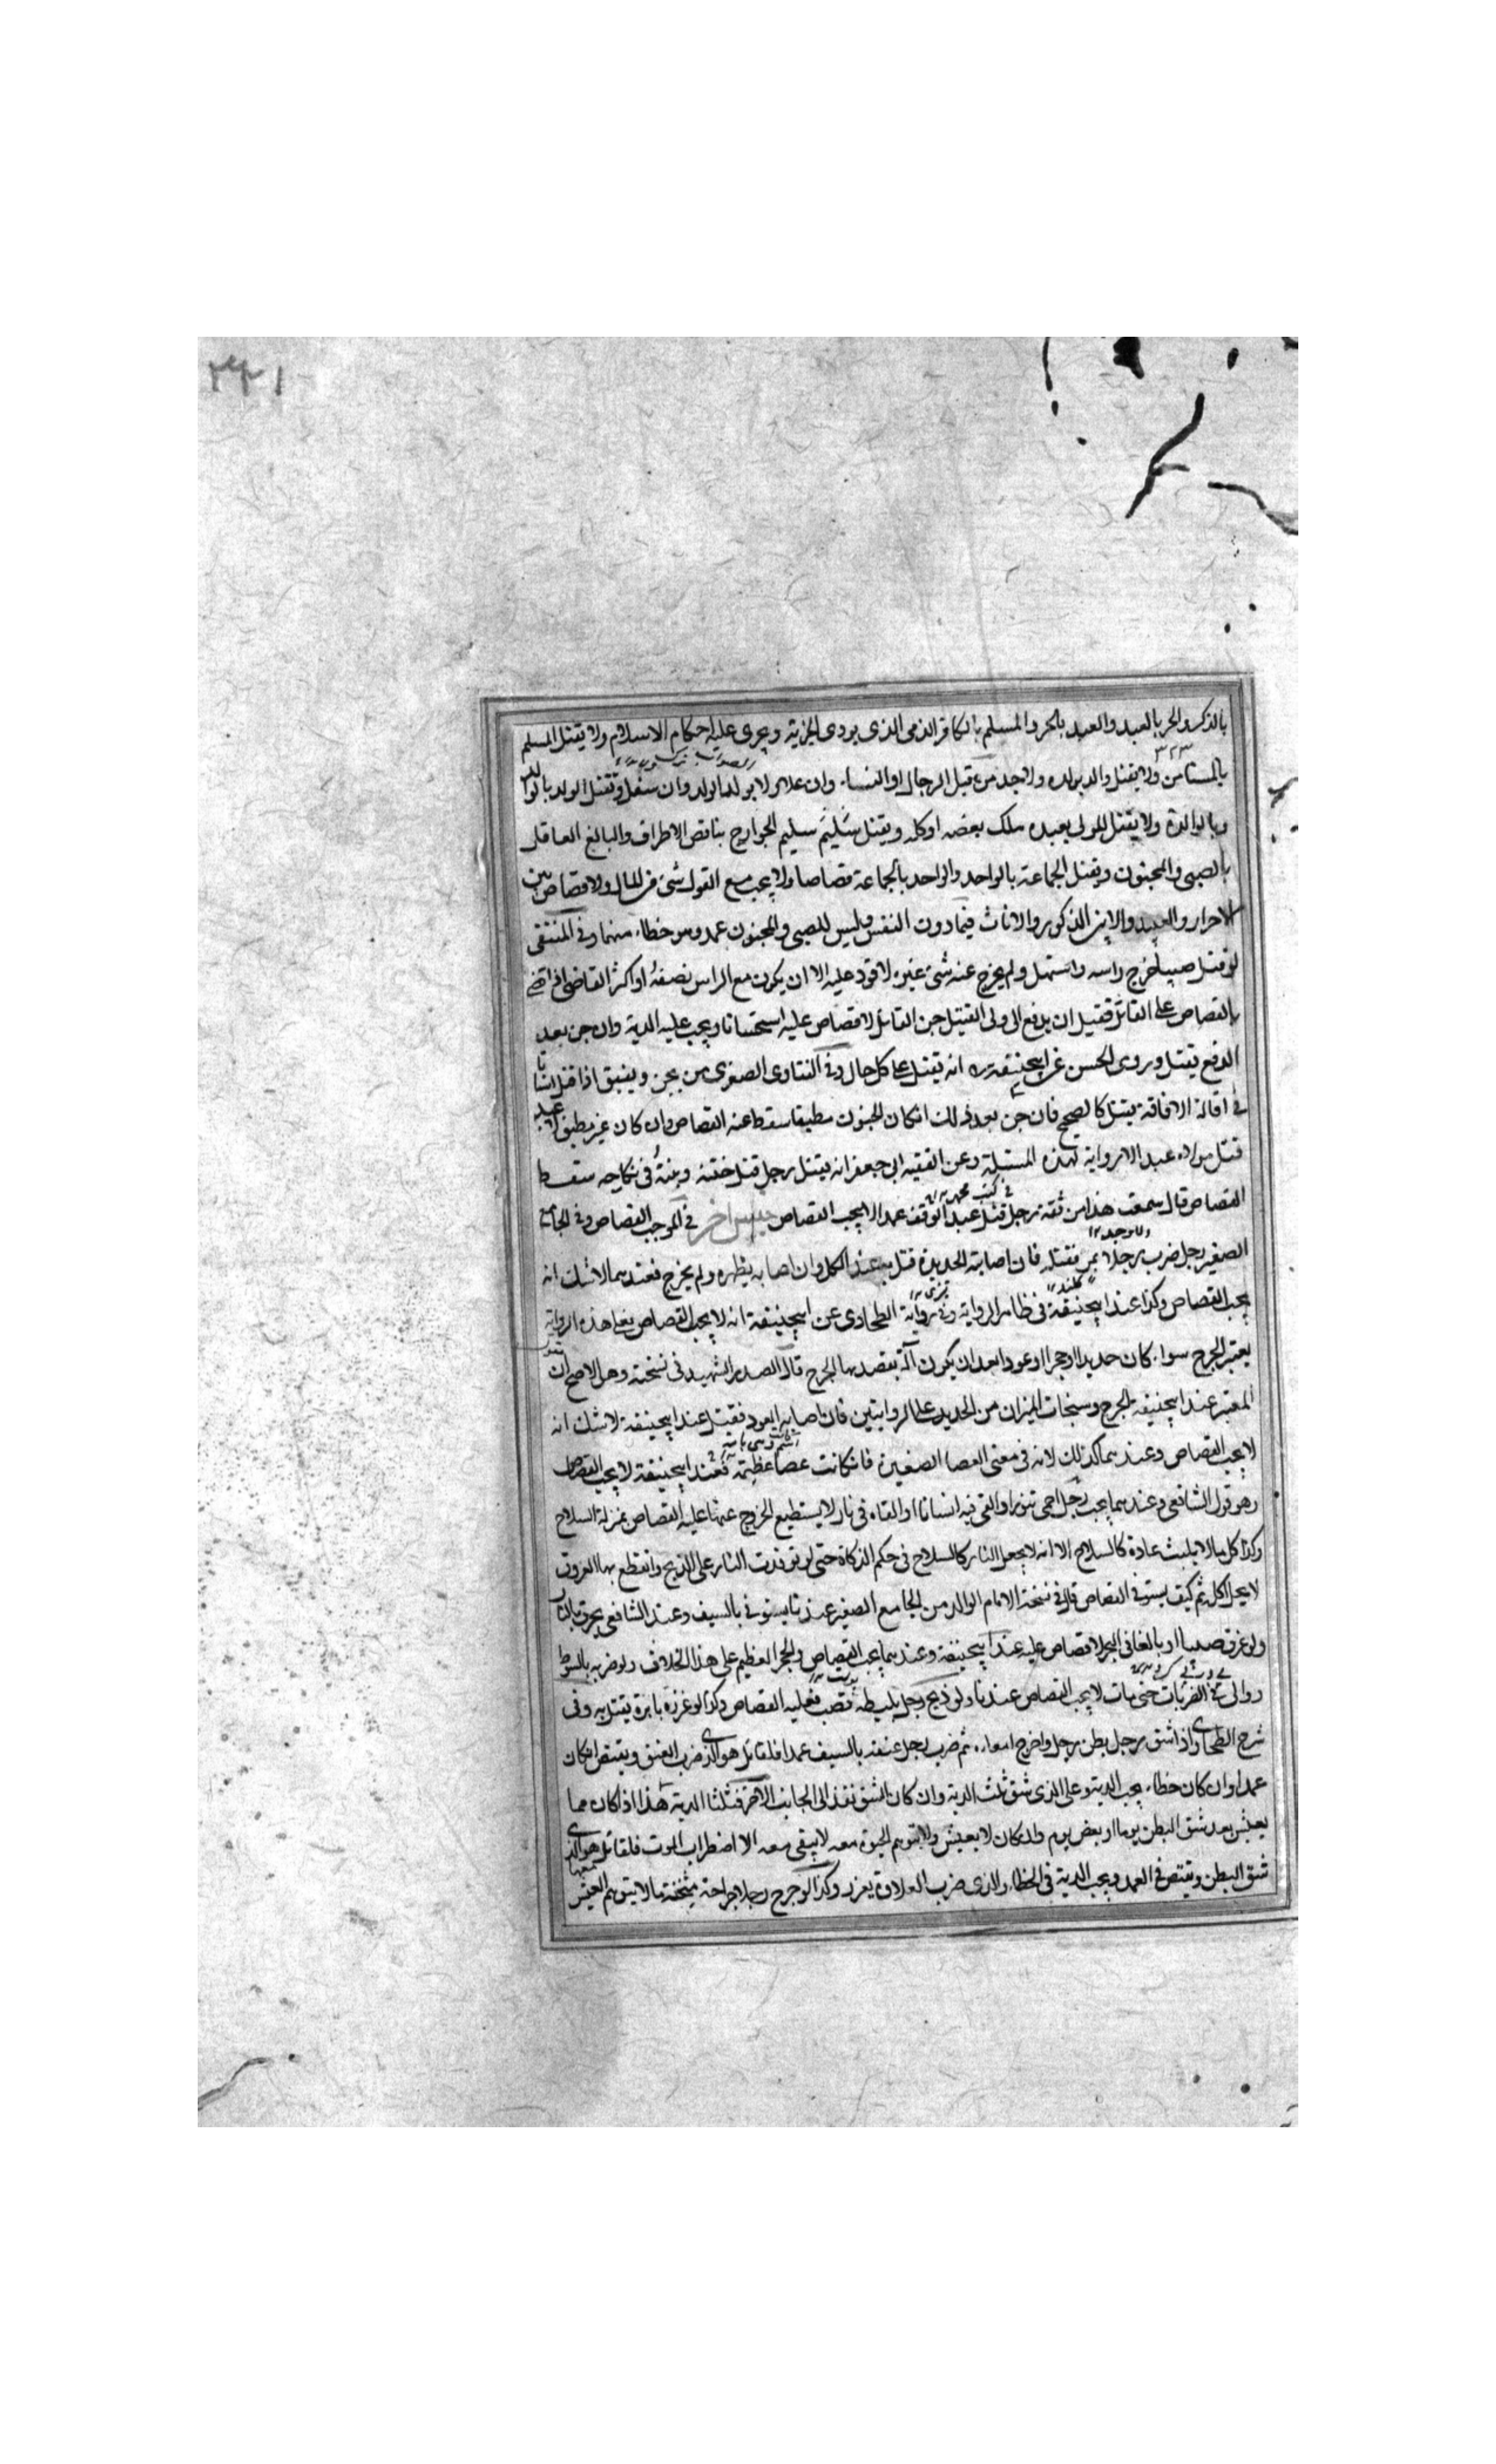 ٣٢١
بالذكر والحر بالعبد والعبد بالحر والمسلم بالكافر الذمى الذى يودى الجزية ويجرى عليه احكام الاسلام ولا يقتل المسلم
٣٢٣
بالمستامن ولا يقتل والد بولده ولا جد من قبل الرجال او النساء وان علا ولا بولد الولد وان سفل ويقتل الولد بالوالد
وبالوالدة ولا يقتل المولى بعبده ملك بعضه او كله ويقتل سليم الجوارح بناقص الاطراف والبالغ العاقل
بالصبى والمجنون ويقتل الجماعة بالواحد والواحد بالجماعة قصاصا ولا يجب مع القود شئ من المال ولا قصاص بين
الاحرار والعبيد ولا بين الذكور والاناث فيما دون النفس وليس للصبى والمجنون عمد وهو خطاء منهما وفى المنتقى
لو قتل صبيا خرج راسه واستهل ولم يخرج عنه شئ غيره لا قود عليه الا ان يكون مع الراس نصفه او اكثر القاضى اذا قضى
بالقصاص على القاتل فقبل ان يدفع الى ولى القتيل جن القاتل لا قصاص عليه استحسانا ويجب عليه الدية وان جن بعد
الدفع يقتل وروى الحسن عن ابيحنيفة ره انه يقتل على كل حال وفى الفتاوى الصغرى من يجن ويفيق اذا قتل انسانا
فى الافاقة يقتل كالصحيح فان جن بعد ذلك انكان الجنون مطبقا سقط عنه القصاص وان كان غير مطبق لا عبد
قتل مولاه عبدا لا رواية لهذه المسئلة وعن الفقيه ابى جعفر انه يقتل رجل قتل ختنه وبنته فى نكاحه سقط
القصاص قال سمعت هذا من ثقة رجل قتل عبد الوقف عمدا لا يجب القصاص جنس اخر فى الموجب القصاص وفى الجامع
الصغير رجل ضرب رجلا بمر فقتله فان اصابته الحديدة قتل به عند الكل وان اصابه بظهره ولم يجرح فعندهما لا شك انه
يجب القصاص وكذا عند ابيحنيفة فى ظاهر الرواية وفى رواية الطحاوى عن ابيحنيفة انه لا يجب القصاص فعلى هذه الرواية
يعتبر الجرح سواء كان حديدا او حجرا او عودا بعد ان يكون آلة يقصد بها الجرح قال الصدر الشهيد فى نسخته وهو الاصح ان
المعتبر عند ابيحنيفة الجرح وسنجات الميزان من الحديد على الروايتين فان اصابه العود فقتل عند ابيحنيفة لا شك انه
لا يجب القصاص وعندهما كذلك لانه فى معنى العصا الصغيرة فان كانت عصا عظيمة فعند ابيحنيفة لا يجب القصاص
وهو قول الشافعى وعندهما يجب رجل احمى تنورا والقى فيه انسانا او القاه فى نار لا يستطيع الخروج عنها عليه القصاص بمنزلة السلاح
وكذا كل ما لا يلبث عادة كالسلاح الا انه لا يجعل النار كالسلاح فى حكم الذكاة حتى لو توقدت النار على الذبح وانقطع بها العروق
لا يحل اكل ثم كيف يستوفى القصاص قال فى نسخة الامام الوالد من الجامع الصغير عندنا يستوفى بالسيف وعند الشافعى يحرق بالنار
ولو غرق صبيا او بالغا فى البحر لا قصاص عليه عند ابيحنيفة وعندهما يجب القصاص والحجر العظيم على هذا الخلاف ولو ضربه بالسوط
ووالى فى الضربات حتى مات لا يجب القصاص عندنا ولو ذبح رجل بليطه قصب فعليه القصاص وكذا لو غرزه بابرة يقتل به وفى
شرح الطحاوى واذا شق رجل بطن رجل واخرج امعاءه ثم ضرب رجل عنقه بالسيف عمدا فالقاتل هو الذى ضرب العنق ويقتص انكان
عمدا وان كان خطاء يجب الدية وعلى الذى شق ثلث الدية وان كان الشق نفذ الى الجانب الآخر فثلثا الدية هذا اذا كان مما
يعيش بعد شق البطن يوما او بعض يوم وان كان لا يعيش ولا يتوهم الحيوة معه لا يبقى معه الا اضطراب الموت فالقاتل هو الذى
شق البطن ويقتص فى العمد ويجب الدية فى الخطاء والذى ضرب العلاوة يعزر وكذا لو جرح رجلا جراحة مثخنة ما لا يتوهم العيش معها